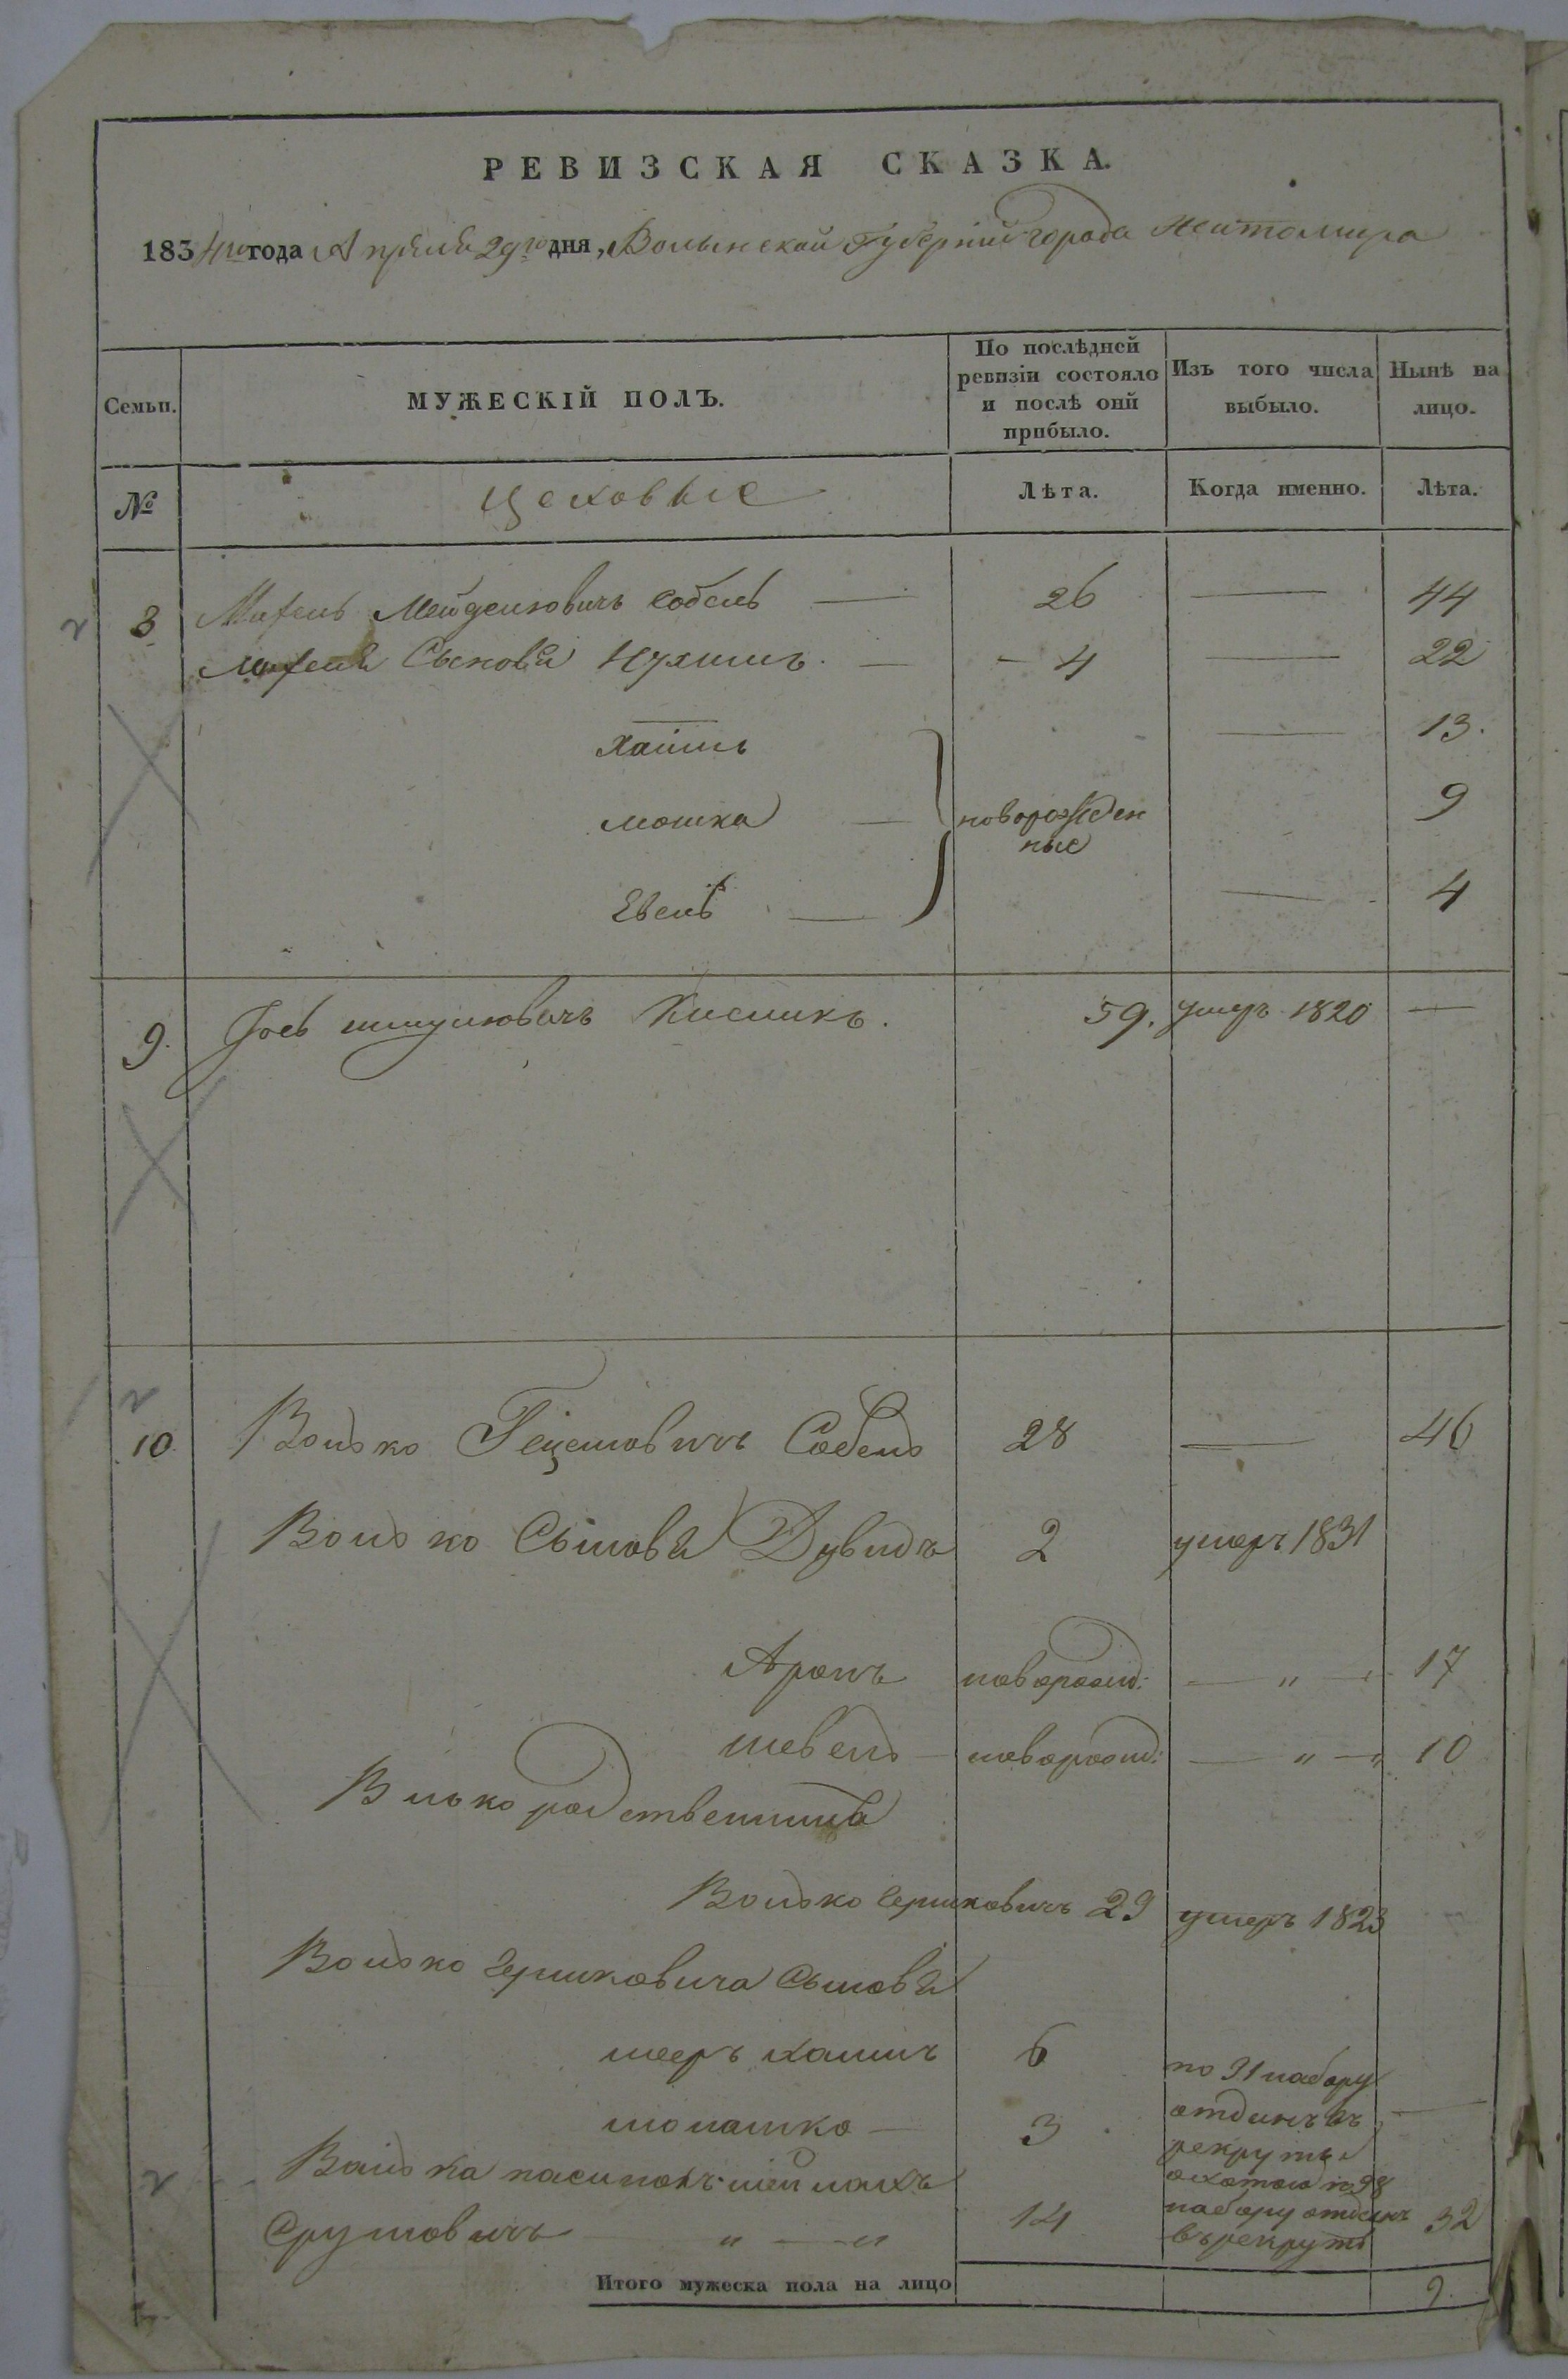 РЕВИЗСКАЯ СКАЗКА.
1834го года Апреля 29го дня, Волынской Губерніи города Житомира
Семьи.
МУЖЕСКІЙ ПОЛЪ.
По послѣдней ревизіи состояло и послѣ оній прибыло.
Изъ того числа выбыло.
Нынѣ на лицо.
№
цеховые
Лѣта.
Когда именно.
Лѣта.
8 Собель 26 44
Сыновья Нухимъ 4 22
Хаимъ 13.
мошка новорожден 9
ные
4
9. Іось Кисликъ. 59. умеръ 1820
10 Волько Гецеловичъ Собель 28 46
Волько Сынова Дувидъ 2 умеръ 1831
Аронъ новорожд: 17
новорожд: 10
родственника
Волько Гершковичъ 29 умеръ 1823
Волько Гершковича Сынова
хаимъ 6 по 91 набору
3 отданъ въ
рекруты
Волька пасинокъ охотою по 98
Сруловичъ 14 набору отданъ 32
въ рекруты
Итого мужеска пола на лицо 9.